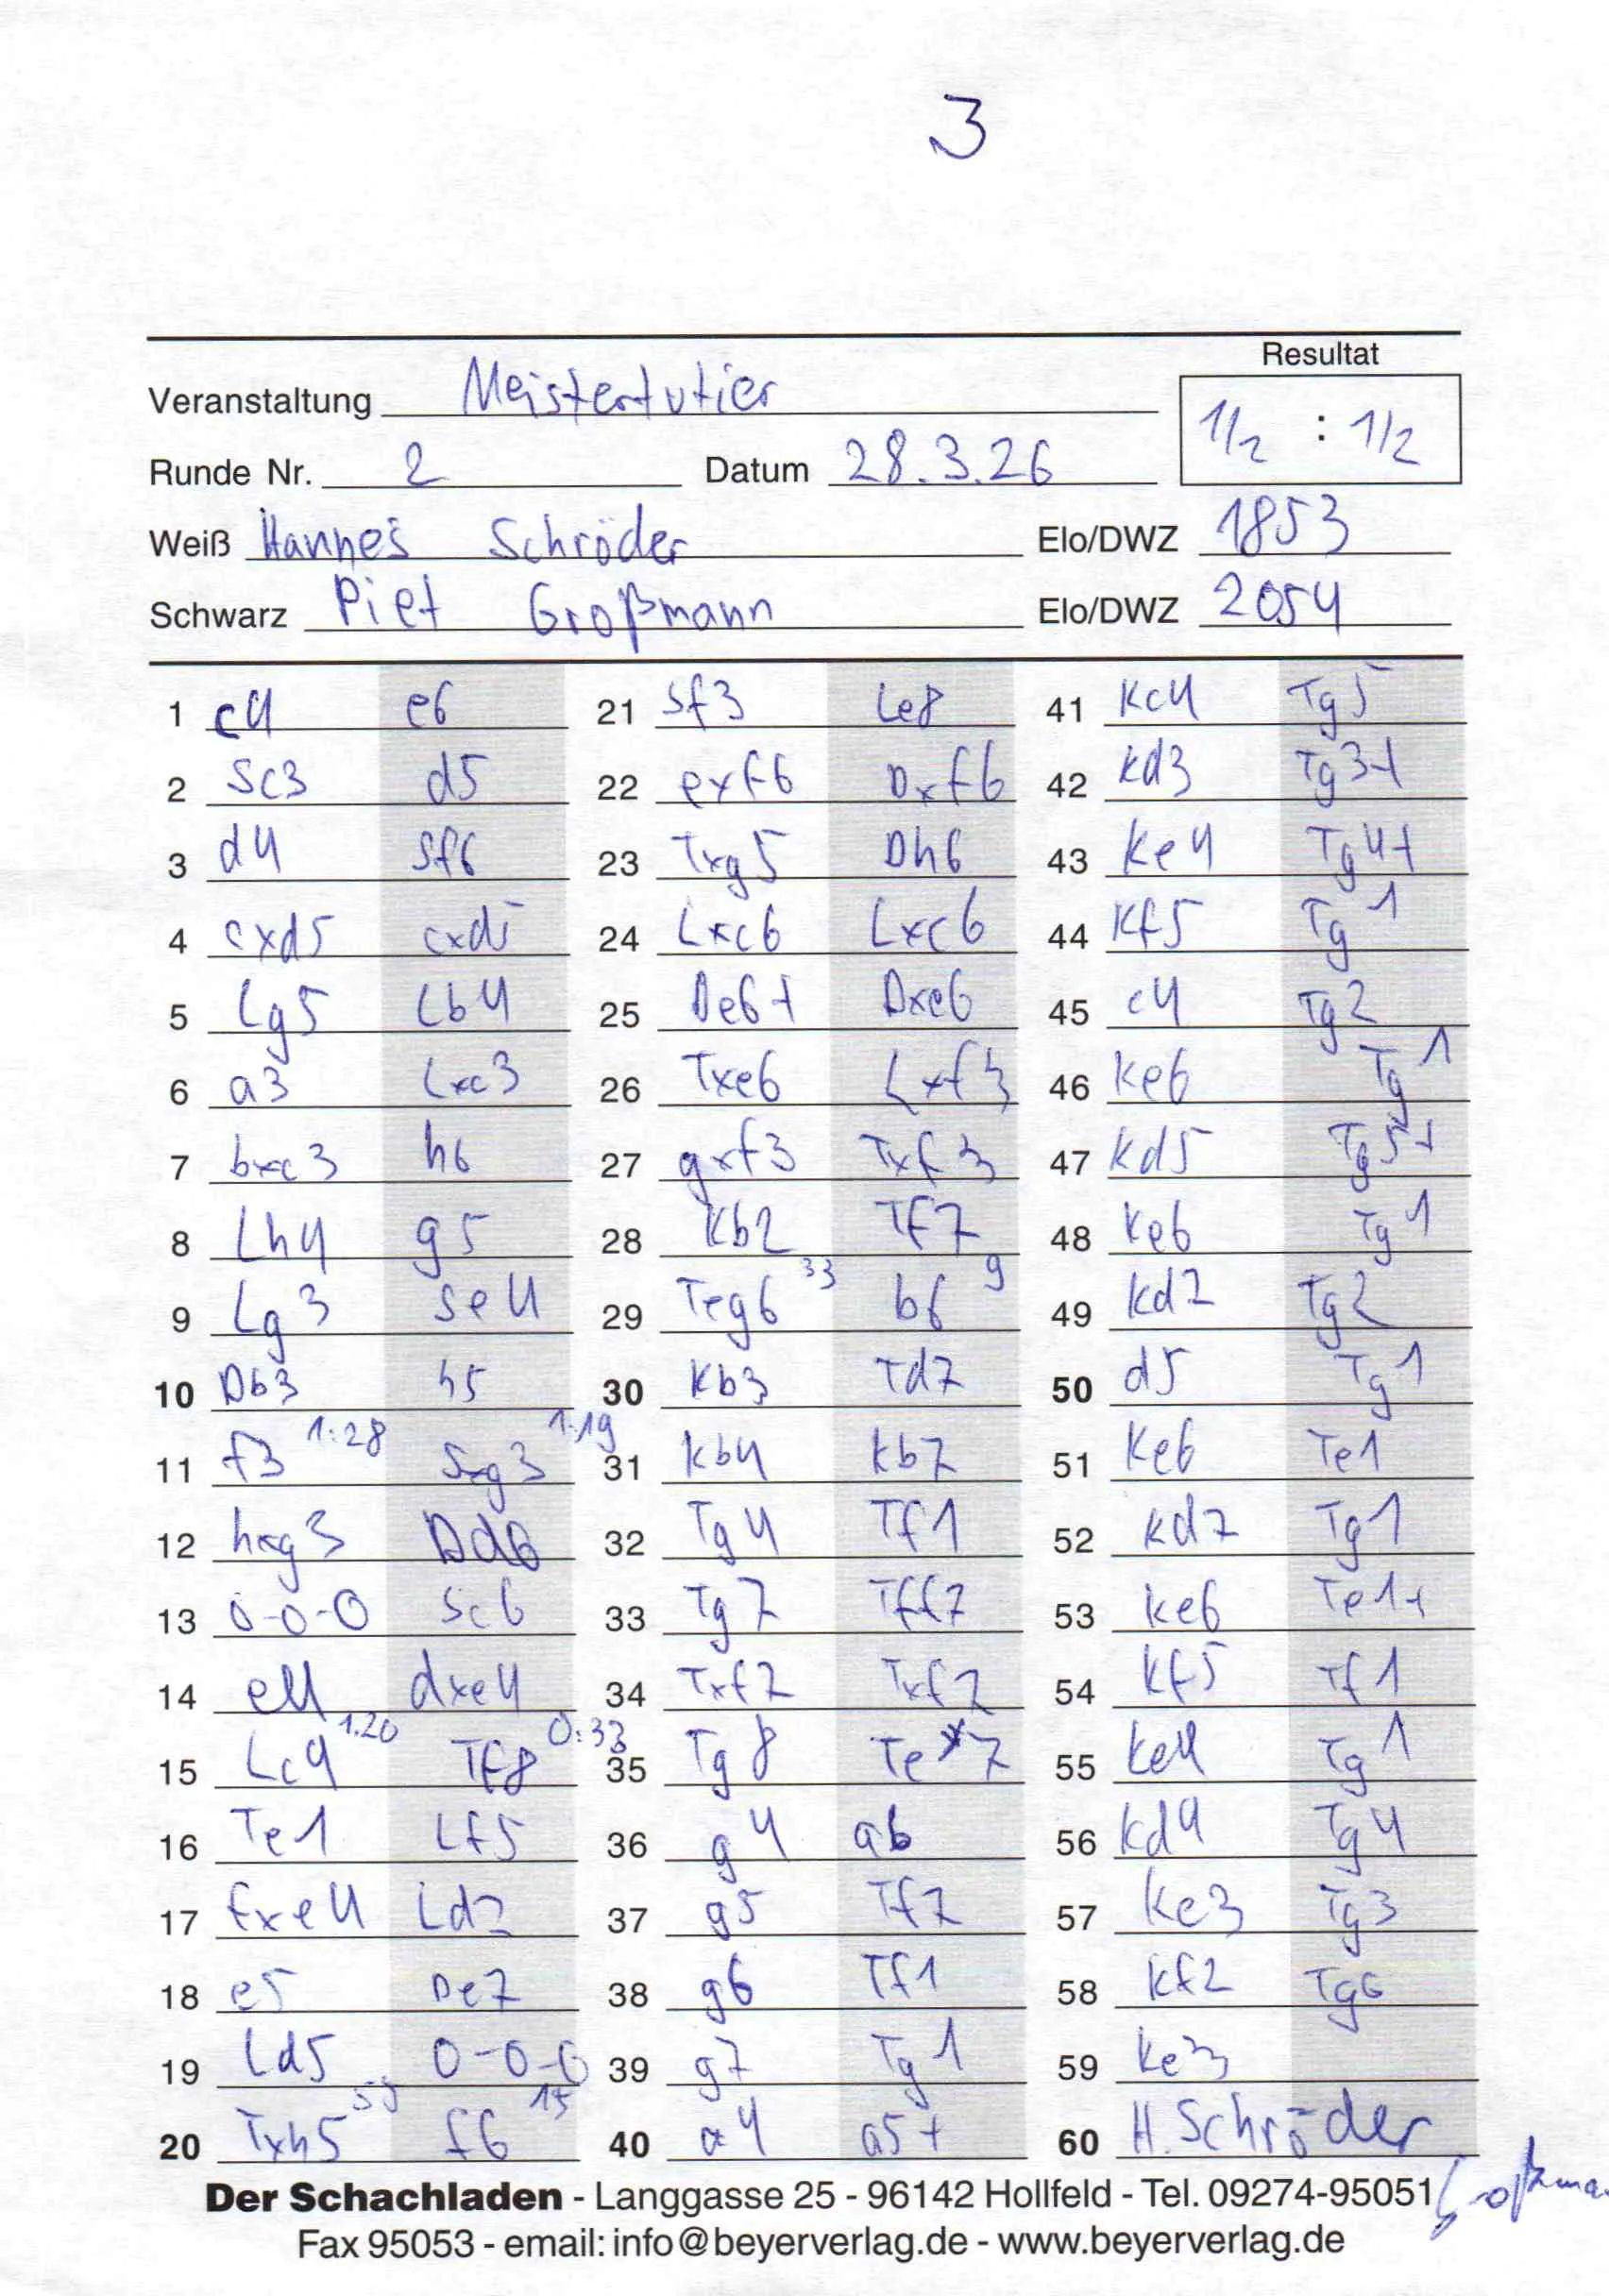 3
Resultat
Veranstaltung Meistertutier
1/2 : 1/2
Runde Nr. 2 Datum 28.3.26
Weiß Hannes Schröder Elo/DWZ 1853
Schwarz Piet Großmann Elo/DWZ 2054
1 c4 e6 21 Sf3 Le8 41 Kc4 Tg5
2 Sc3 d5 22 exf6 Dxf6 42 Kd3 Tg3+
3 d4 Sf6 23 Txg5 Dh6 43 Ke4 Tg4+
4 cxd5 cxd5 24 Lxc6 Lxc6 44 Kf5 Tg1
5 Lg5 Lb4 25 De6+ Dxe6 45 c4 Tg2
6 a3 Lxc3 26 Txe6 Lxf3 46 Ke6 Tg1
7 bxc3 h6 27 gxf3 Txf3 47 Kd5 Tg5+
8 Lh4 g5 28 Kb2 Tf7 48 Ke6 Tg1
9 Lg3 Se4 29 Teg6 33 b6 9 49 Kd7 Tg2
10 Db3 h5 30 Kb3 Td7 50 d5 Tg1
11 f3 1:28 Sxg3 1:19 31 Kb4 Kb7 51 Ke6 Te1
12 hxg3 Dd6 32 Tg4 Tf1 52 Kd7 Tg1
13 0-0-0 Sc6 33 Tg7 Tff7 53 Ke6 Te1+
14 e4 dxe4 34 Txf7 Txf7 54 Kf5 Tf1
15 Lc4 1:20 Tf8 0:33 35 Tg8 Te7 55 Ke4 Tg1
16 Te1 Lf5 36 g4 a6 56 Kd4 Tg4
17 fxe4 Ld7 37 g5 Tf7 57 Ke3 Tg3
18 e5 De7 38 g6 Tf1 58 Kf2 Tg6
19 Ld5 0-0-0 39 g7 Tg1 59 Ke3
20 Txh5 f6 15 40 a4 a5+ 60 H. Schröder
Der Schachladen - Langgasse 25 - 96142 Hollfeld - Tel. 09274-95051
Fax 95053 - email: info@beyerverlag.de - www.beyerverlag.de